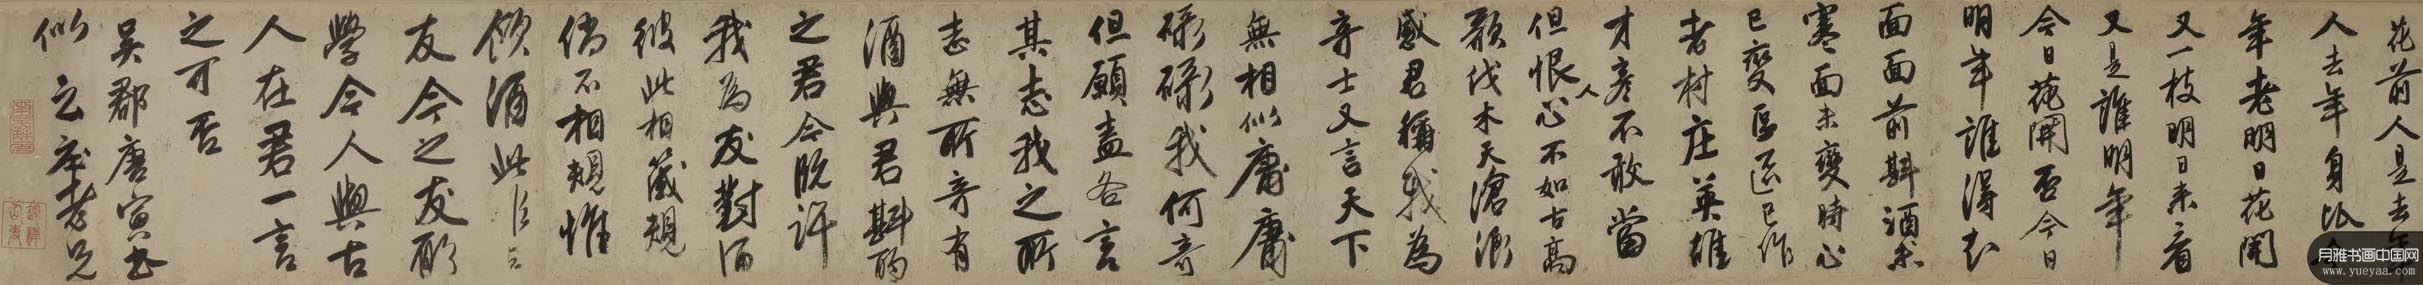 花前人是去年
人去年身比今
年老明日花開
又一枝明日来看
又是誰明年
今日花開否今日
明年誰得知
面面前斟酒未
寒面未變時心
已變區區已作
老村庄英雄
才彥不敢當
但恨人心不如古高
歌伐木天滄浪
感君稱我為
奇士又言天下
無相似庸庸
碌碌我何奇
但願盖各言
其志我之所
志無所奇有
酒與君斟酌
之君今既許
我為友對酒
彼此相箴規
倘不相規惟
飲酒此
友今之友所
學今人與古
人在君一言
之可否
吴郡唐寅书
似立夲老兄
月雅书画中国网
www.yueyaa.com